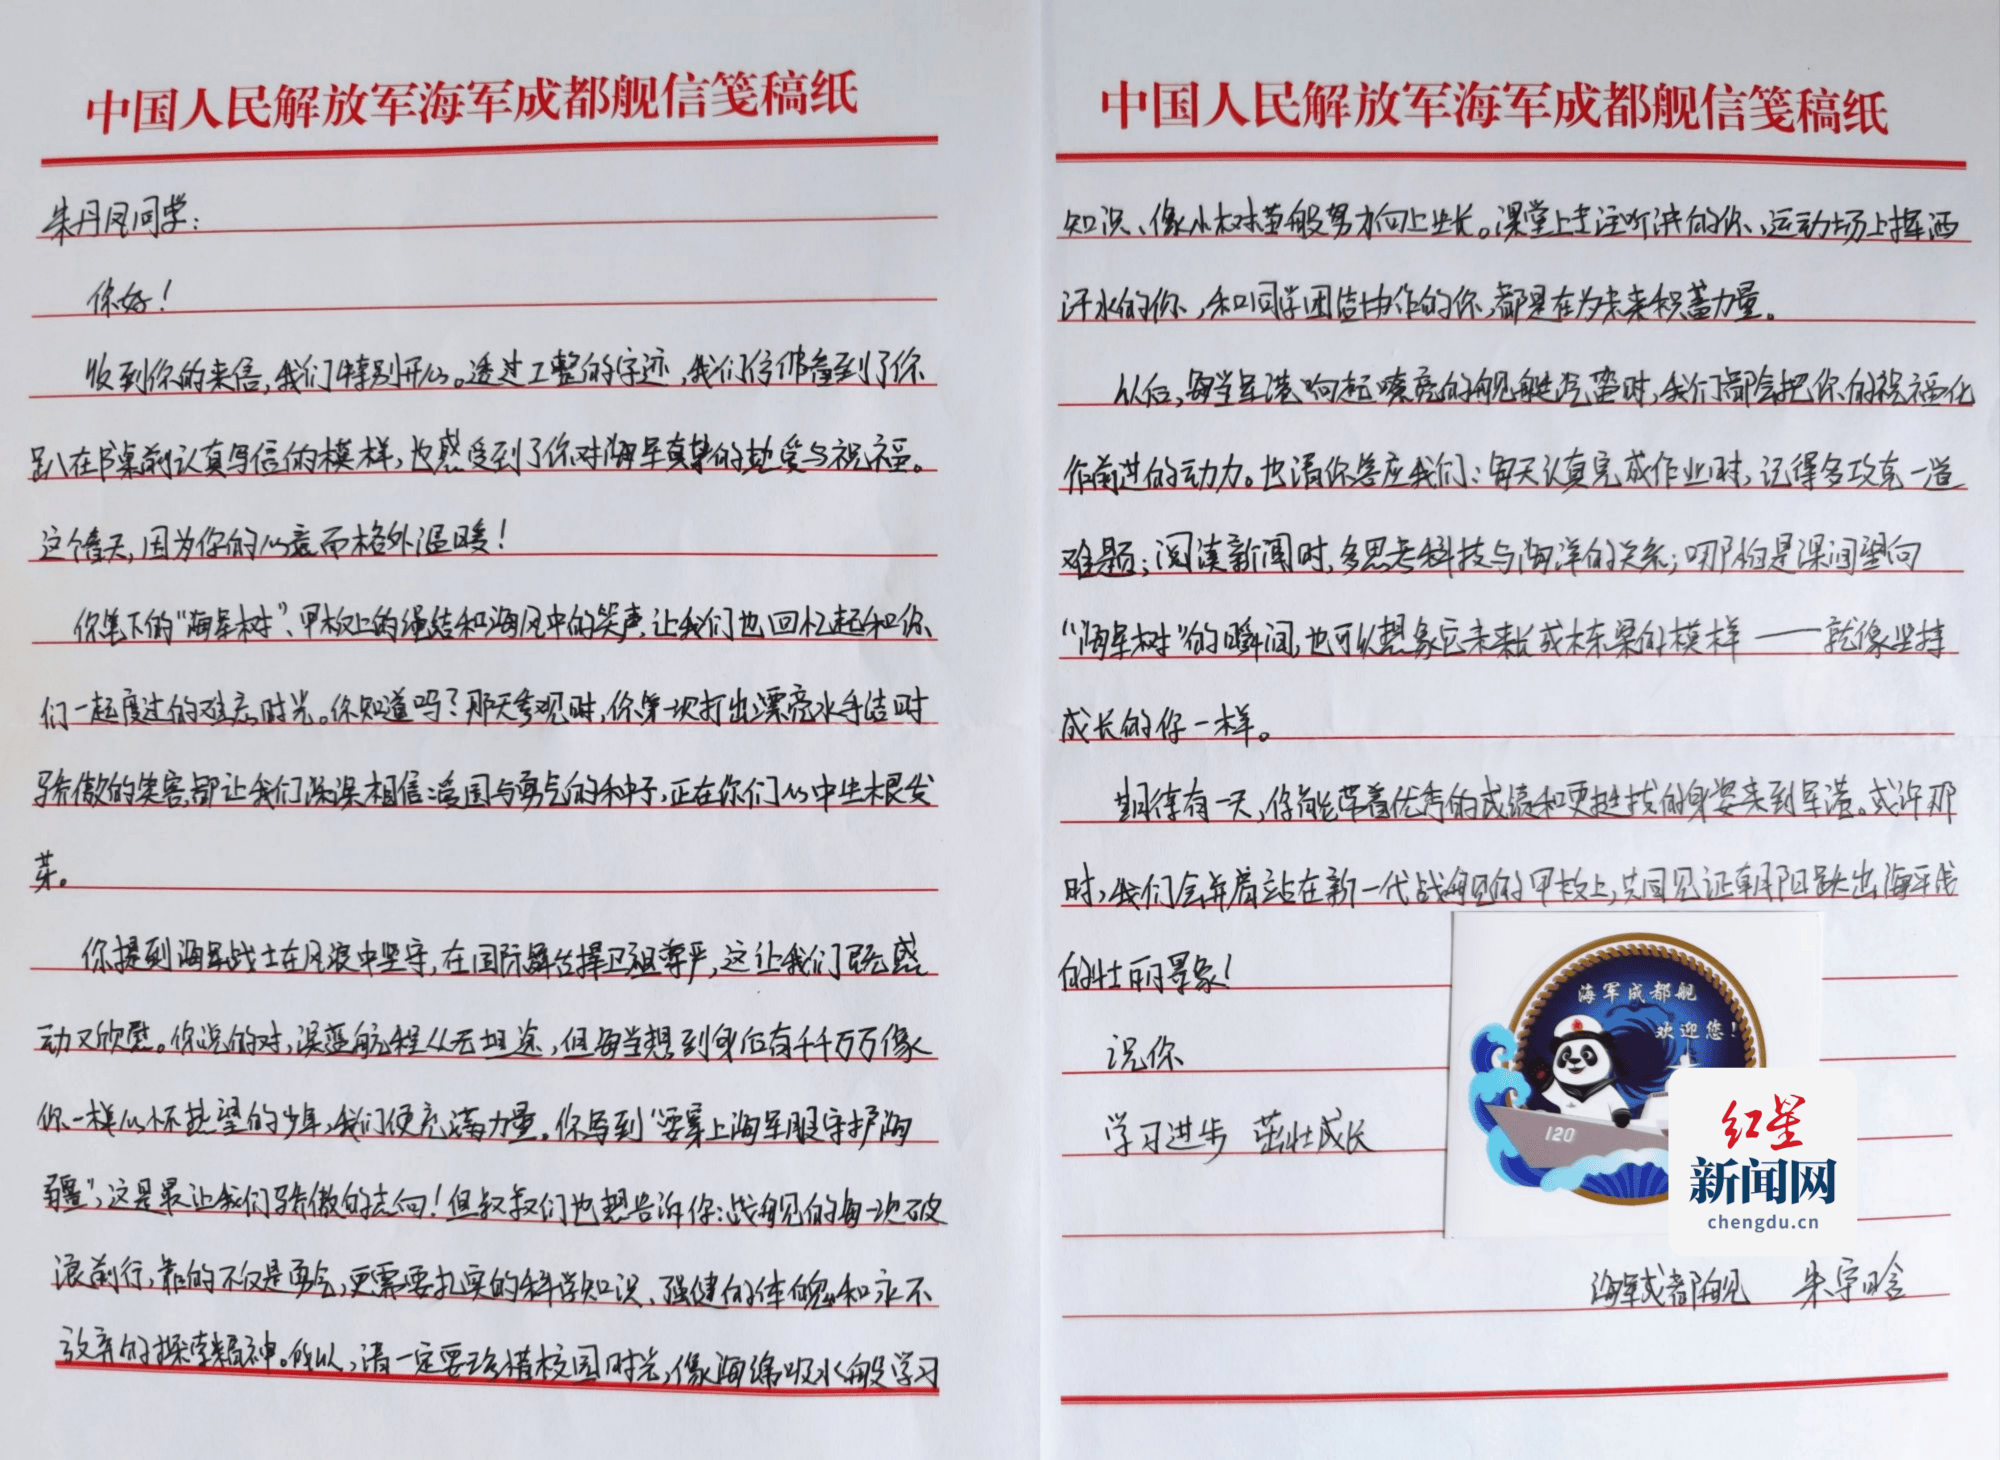 中国人民解放军海军成都舰信笺稿纸
朱丹凤同学：
你好！
收到你的来信，我们特别开心。透过工整的字迹，我们仿佛看到了你
趴在书桌前认真写信的模样，也感受到了你对海军真挚的热爱与祝福。
这个春天，因为你的心意而格外温暖！
你笔下的“海军树”、甲板上的绳结和海风中的笑声，让我们也回忆起和你
们一起度过的难忘时光。你知道吗？那天参观时，你第一次打出漂亮水手结时
骄傲的笑容，都让我们深深相信：爱国与勇气的种子，正在你们心中生根发
芽。
你提到海军战士在风浪中坚守，在国际舞台捍卫祖国尊严，这让我们既感
动又欣慰。你说的对，深蓝航程从无坦途，但每当想到身后有千千万万像
你一样心怀热望的少年，我们便充满力量。你写到“要穿上海军服守护海
疆”，这是最让我们骄傲的志向！但叔叔们也想告诉你：战舰的每一次破
浪前行，靠的不仅是勇气，更需要扎实的科学知识、强健的体魄和永不
放弃的探索精神。所以，请一定要珍惜校园时光，像海绵吸水般学习
中国人民解放军海军成都舰信笺稿纸
知识、像小树苗般努力向上生长。课堂上专注听讲的你、运动场上挥洒
汗水的你、和同学团结协作的你，都是在为未来积蓄力量。
以后，每当军港响起嘹亮的舰艇汽笛时，我们都会把你的祝福化
作前进的动力。也请你答应我们：每天认真完成作业时，记得多攻克一道
难题；阅读新闻时，多思考科技与海洋的关系；哪怕是课间望向
“海军树”的瞬间，也可以想象它未来长成栋梁的模样——就像坚持
成长的你一样。
期待有一天，你能带着优秀的成绩和更挺拔的身姿来到军港。或许那
时，我们会并肩站在新一代战舰的甲板上，共同见证朝阳跃出海平线
的壮丽景象！
祝你
学习进步 茁壮成长
海军成都舰
欢迎您！
120
红星
新闻网
chengdu.cn
海军成都舰 朱宇晗